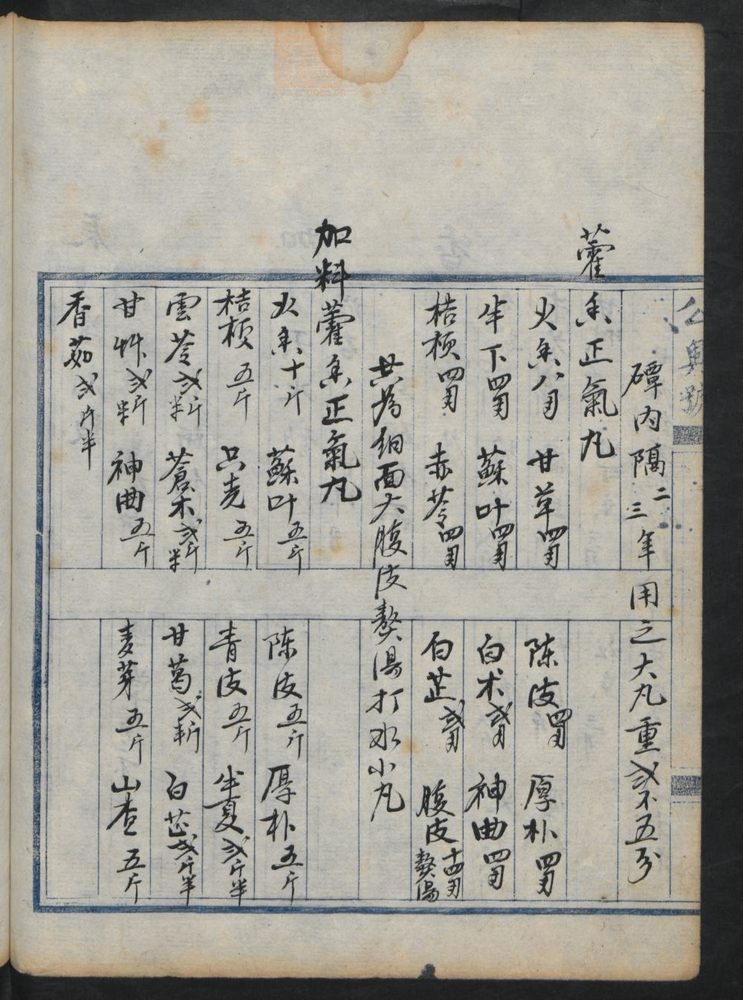 公興號
磹內隔二三年用之大丸重弍不五分
藿香正氣丸
火香八刄 甘草四刄 陈皮四刄 厚朴四刄
半下四刄 蘇叶四刄 白术弍刄 神曲四刄
桔梗四刄 赤苓四刄 白芷弍刄 腹皮十四刄熬湯
共為细面大腹皮熬湯打水小丸
加料藿香正氣丸
火香十斤 蘇叶五斤 陈皮五斤 厚朴五斤
桔梗五斤 只壳五斤 青皮五斤 半夏弍斤半
雲苓弍斤半 蒼术弍斤半 甘葛弍斤 白芷弍斤半
甘艸弍斤半 神曲五斤 麦芽五斤 山查五斤
香茹弍斤半